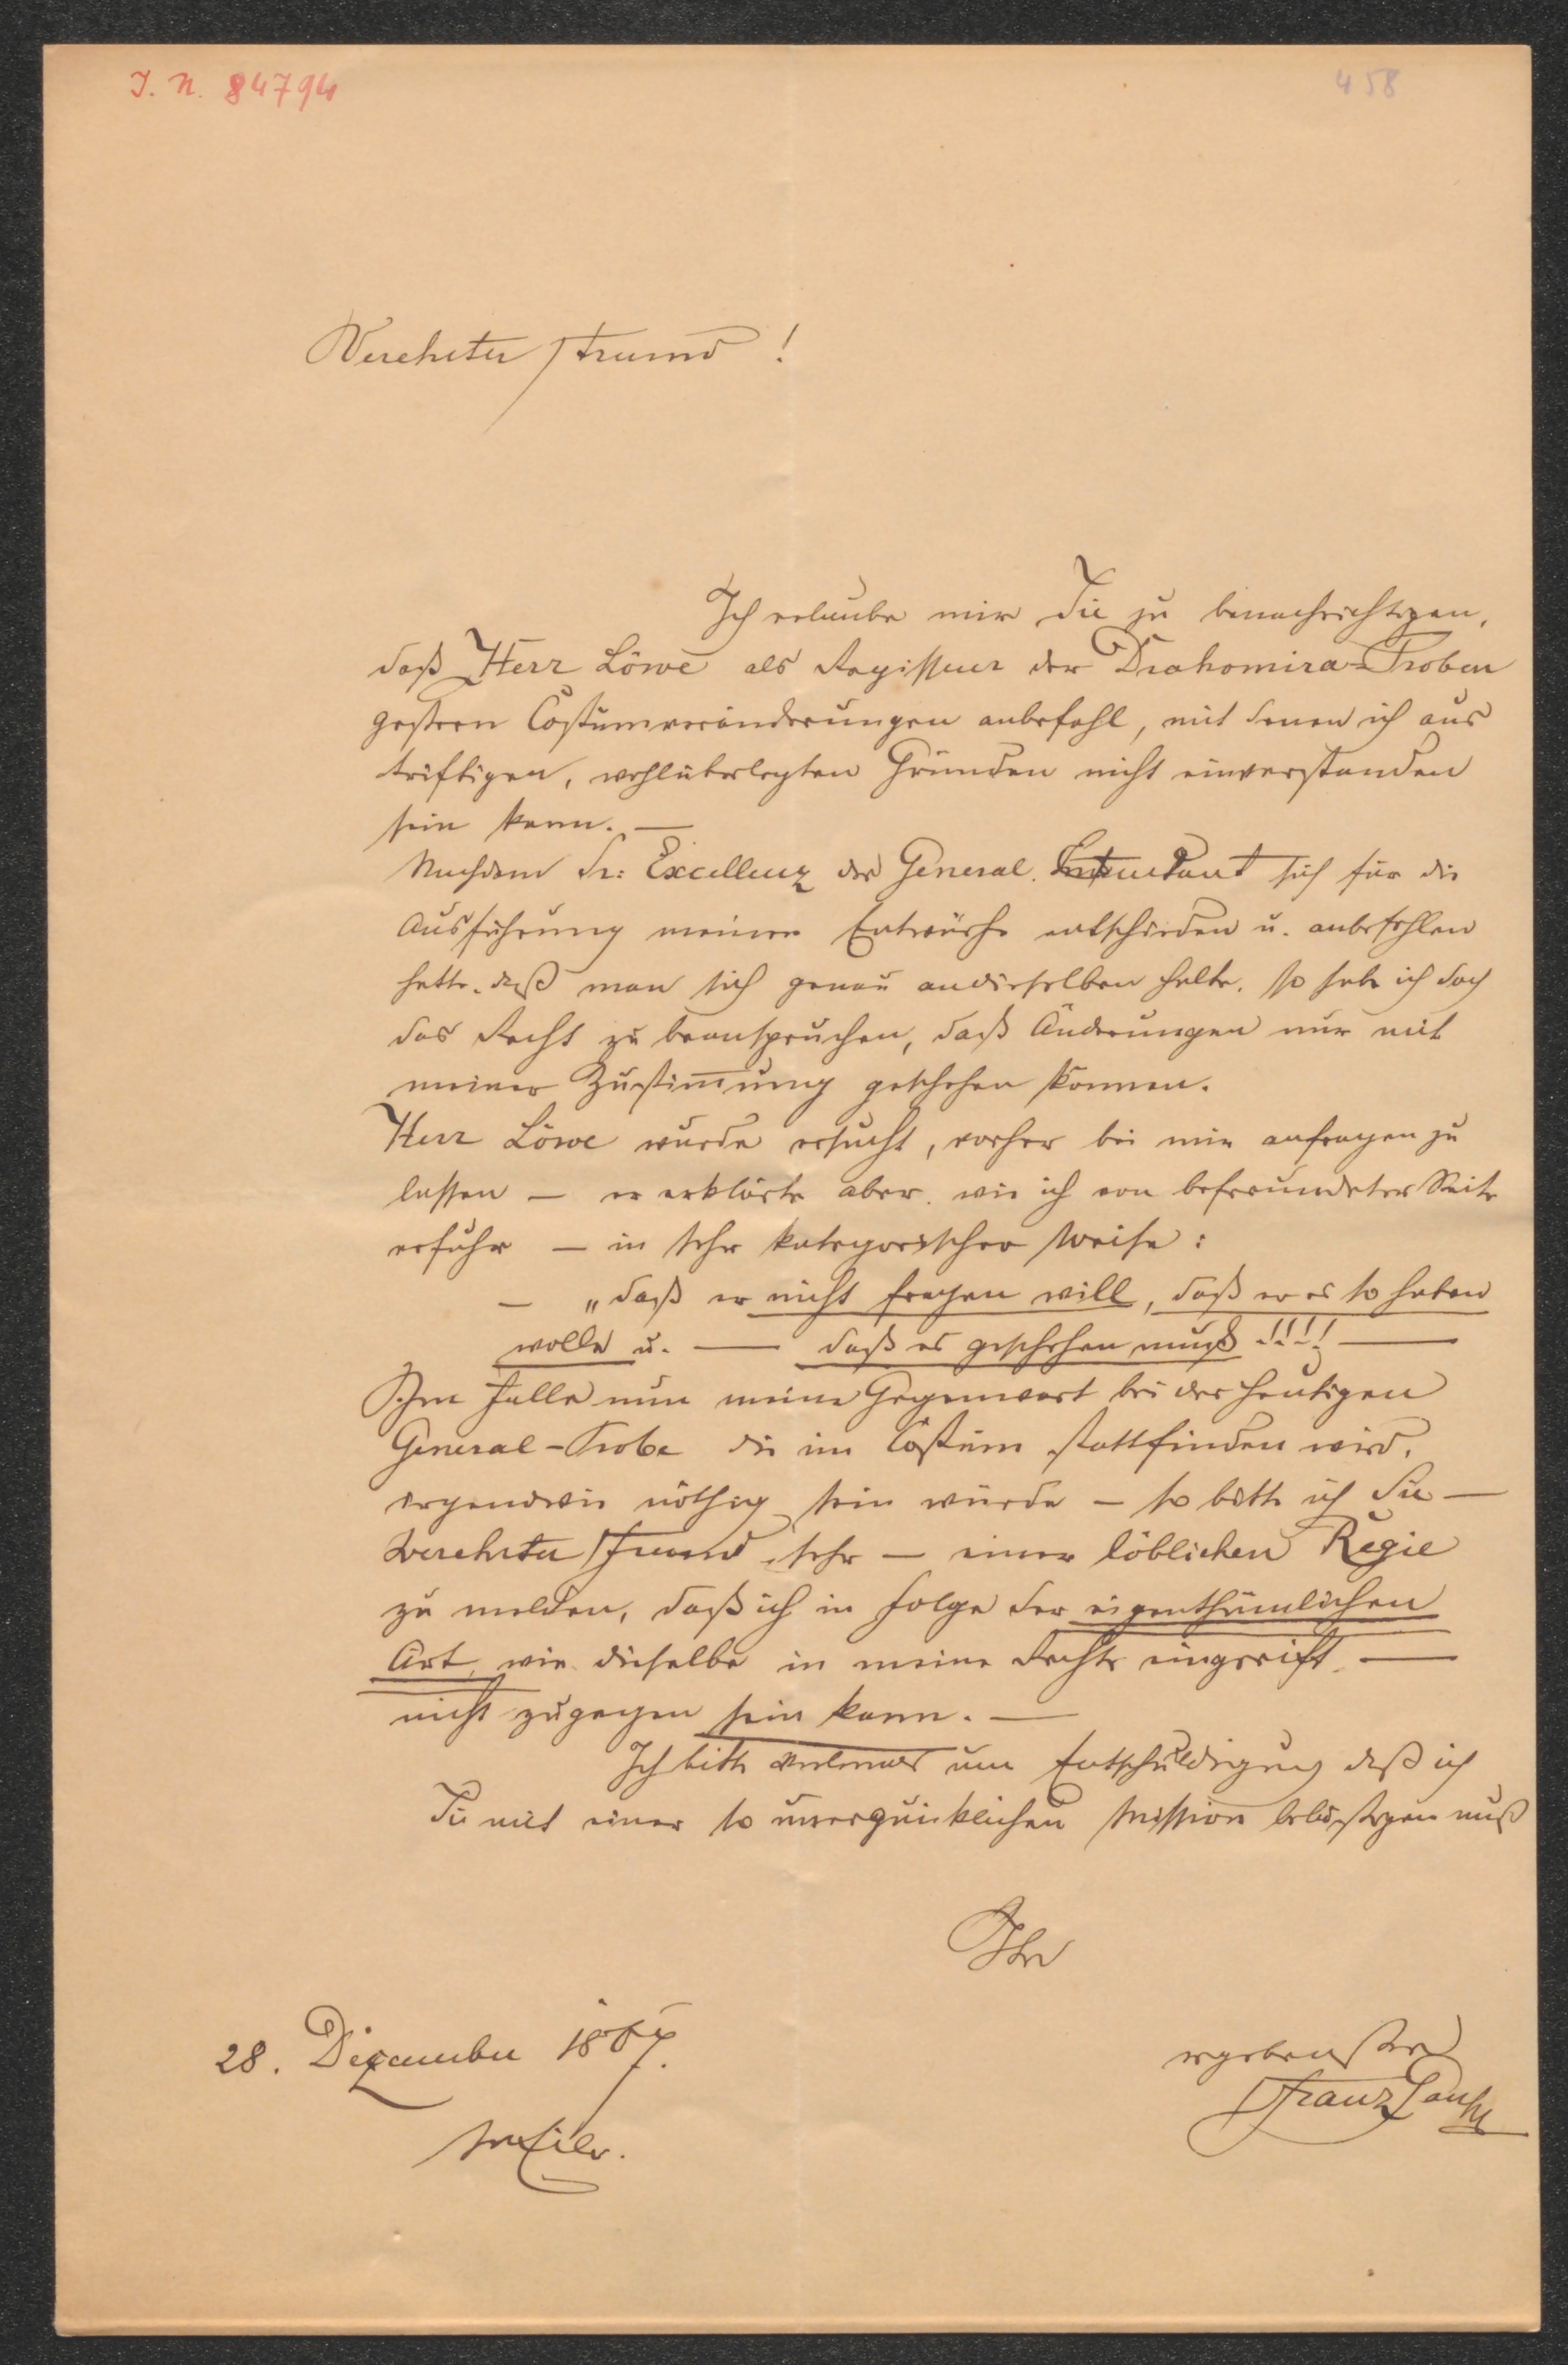 J. N. 84794
458
Verehrter Freund!
Ich erlaube mir Sie zu benachrichtigen,
daß Herr Löwe als Regisseur der Drahomira-Proben
gestern Costümveränderungen anbefahl, mit denen ich aus
triftigen, wohlüberlegten Gründen nicht einverstanden
sein kann. —
Nachdem Sr: Excellenz der General. Intendant sich für die
Ausführung meiner Entwürfe entschieden u. anbefohlen
hatte, daß man sich genau an dieselben halte, so habe ich doch
das Recht zu beanspruchen, daß Änderungen nur mit
meiner Zustimmung geschehen können.
Herr Löwe wurde ersucht, vorher bei mir anfragen zu
lassen — er erklärte aber, wie ich von befreundeter Seite
erfuhr — in sehr kategorischer Weise:
— „daß er nicht fragen will, daß er es so haben
wolle u. — daß es geschehen muß!!!! —
Im Falle nun meine Gegenwart bei der heutigen
General-Probe die im Costüm stattfinden wird,
irgendwie nöthig sein würde — so bitte ich Sie —
Verehrter Freund sehr — einer löblichen Regie
zu melden, daß ich in Folge der eigenthümlichen
Art, wie dieselbe in meine Rechte eingreift, —
nicht zugegen sein kann. —
Ich bitte vielmals um Entschuldigung daß ich
Sie mit einer so unerquicklichen Mission belästigen muß
Ihr
28. Dezember 1867.
ergebenster
Franz Gaul